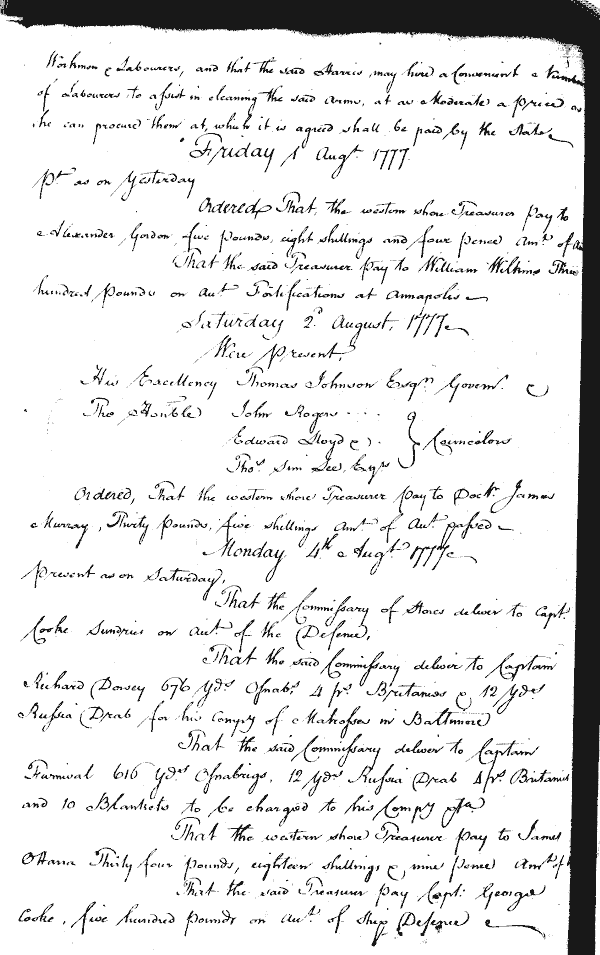 Workmen & Labourers, and that the said Harris may hire a Convenient Number
of Labourers to assist in cleaning the said Arms, at as Moderate a Price as
he can procure them at, which it is agreed shall be paid by the State
Friday 1st Augt. 1777
Pt. as on Yesterday
Ordered, That the western shore Treasurer pay to
Alexander Gordon five pounds, eight shillings and four pence Amt. of
That the said Treasurer pay to William Wilkins Three
hundred pounds on Aut. Fortifications at Annapolis
Saturday 2d. August, 1777
Were Present,
His Excellency Thomas Johnson Esqr. Governr.
The Honble John Rogers
Edward Lloyd &
Thos. Sim Lee, Esqrs } Councilors
Ordered, That the western shore Treasurer pay to Doctr. James
Murray, Thirty Pounds, five shillings Amt. of Aut. passed
Monday 4th Augt. 1777
Present as on Saturday,
That the Commissary of Stores deliver to Capt.
Cooke Sundries on Aut. of the Defence,
That the said Commissary deliver to Captain
Richard Dorsey 676 Yds. Osnabs. 4 ps. Britanias & 12 Yds
Russia Drab for his Compy of Matrosses in Baltimore
That the said Commissary deliver to Captain
Furnival 616 Yds Osnabrigs, 12 yds Russia Drab 4 ps. Britanias
and 10 Blankets to be charged to his Compy
That the western shore Treasurer pay to James
Ottana Thirty four pounds, eighteen shillings & nine pence Amt. of
That the said Treasurer pay Capt. George
Cooke, five hundred pounds on Aut. of Ship Defence